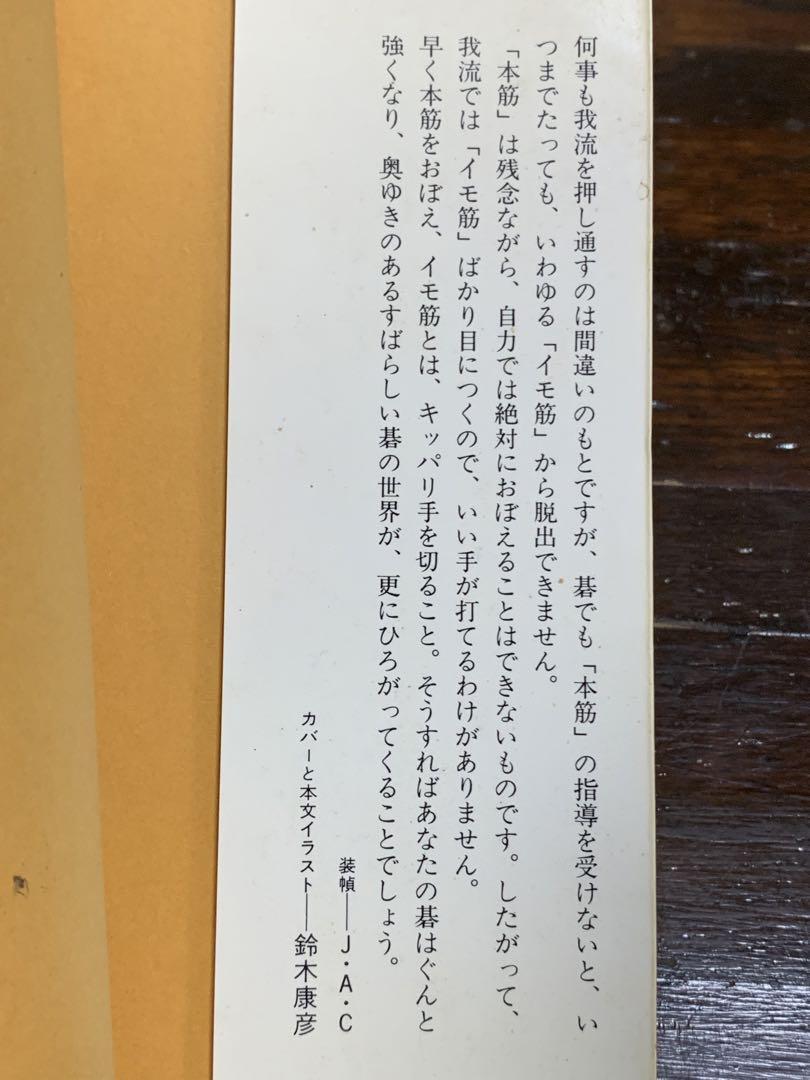 何事も我流を押し通すのは間違いのもとですが、碁でも「本筋」の指導を受けないと、い
つまでたっても、いわゆる「イモ筋」から脱出できません。
「本筋」は残念ながら、自力では絶対におぼえることはできないものです。したがって、
我流では「イモ筋」ばかり目につくので、いい手が打てるわけがありません。
早く本筋をおぼえ、イモ筋とは、キッパリ手を切ること。そうすればあなたの碁はぐんと
強くなり、奥ゆきのあるすばらしい碁の世界が、更にひろがってくることでしょう。
装幀──J・A・C
カバーと本文イラスト──鈴木康彦